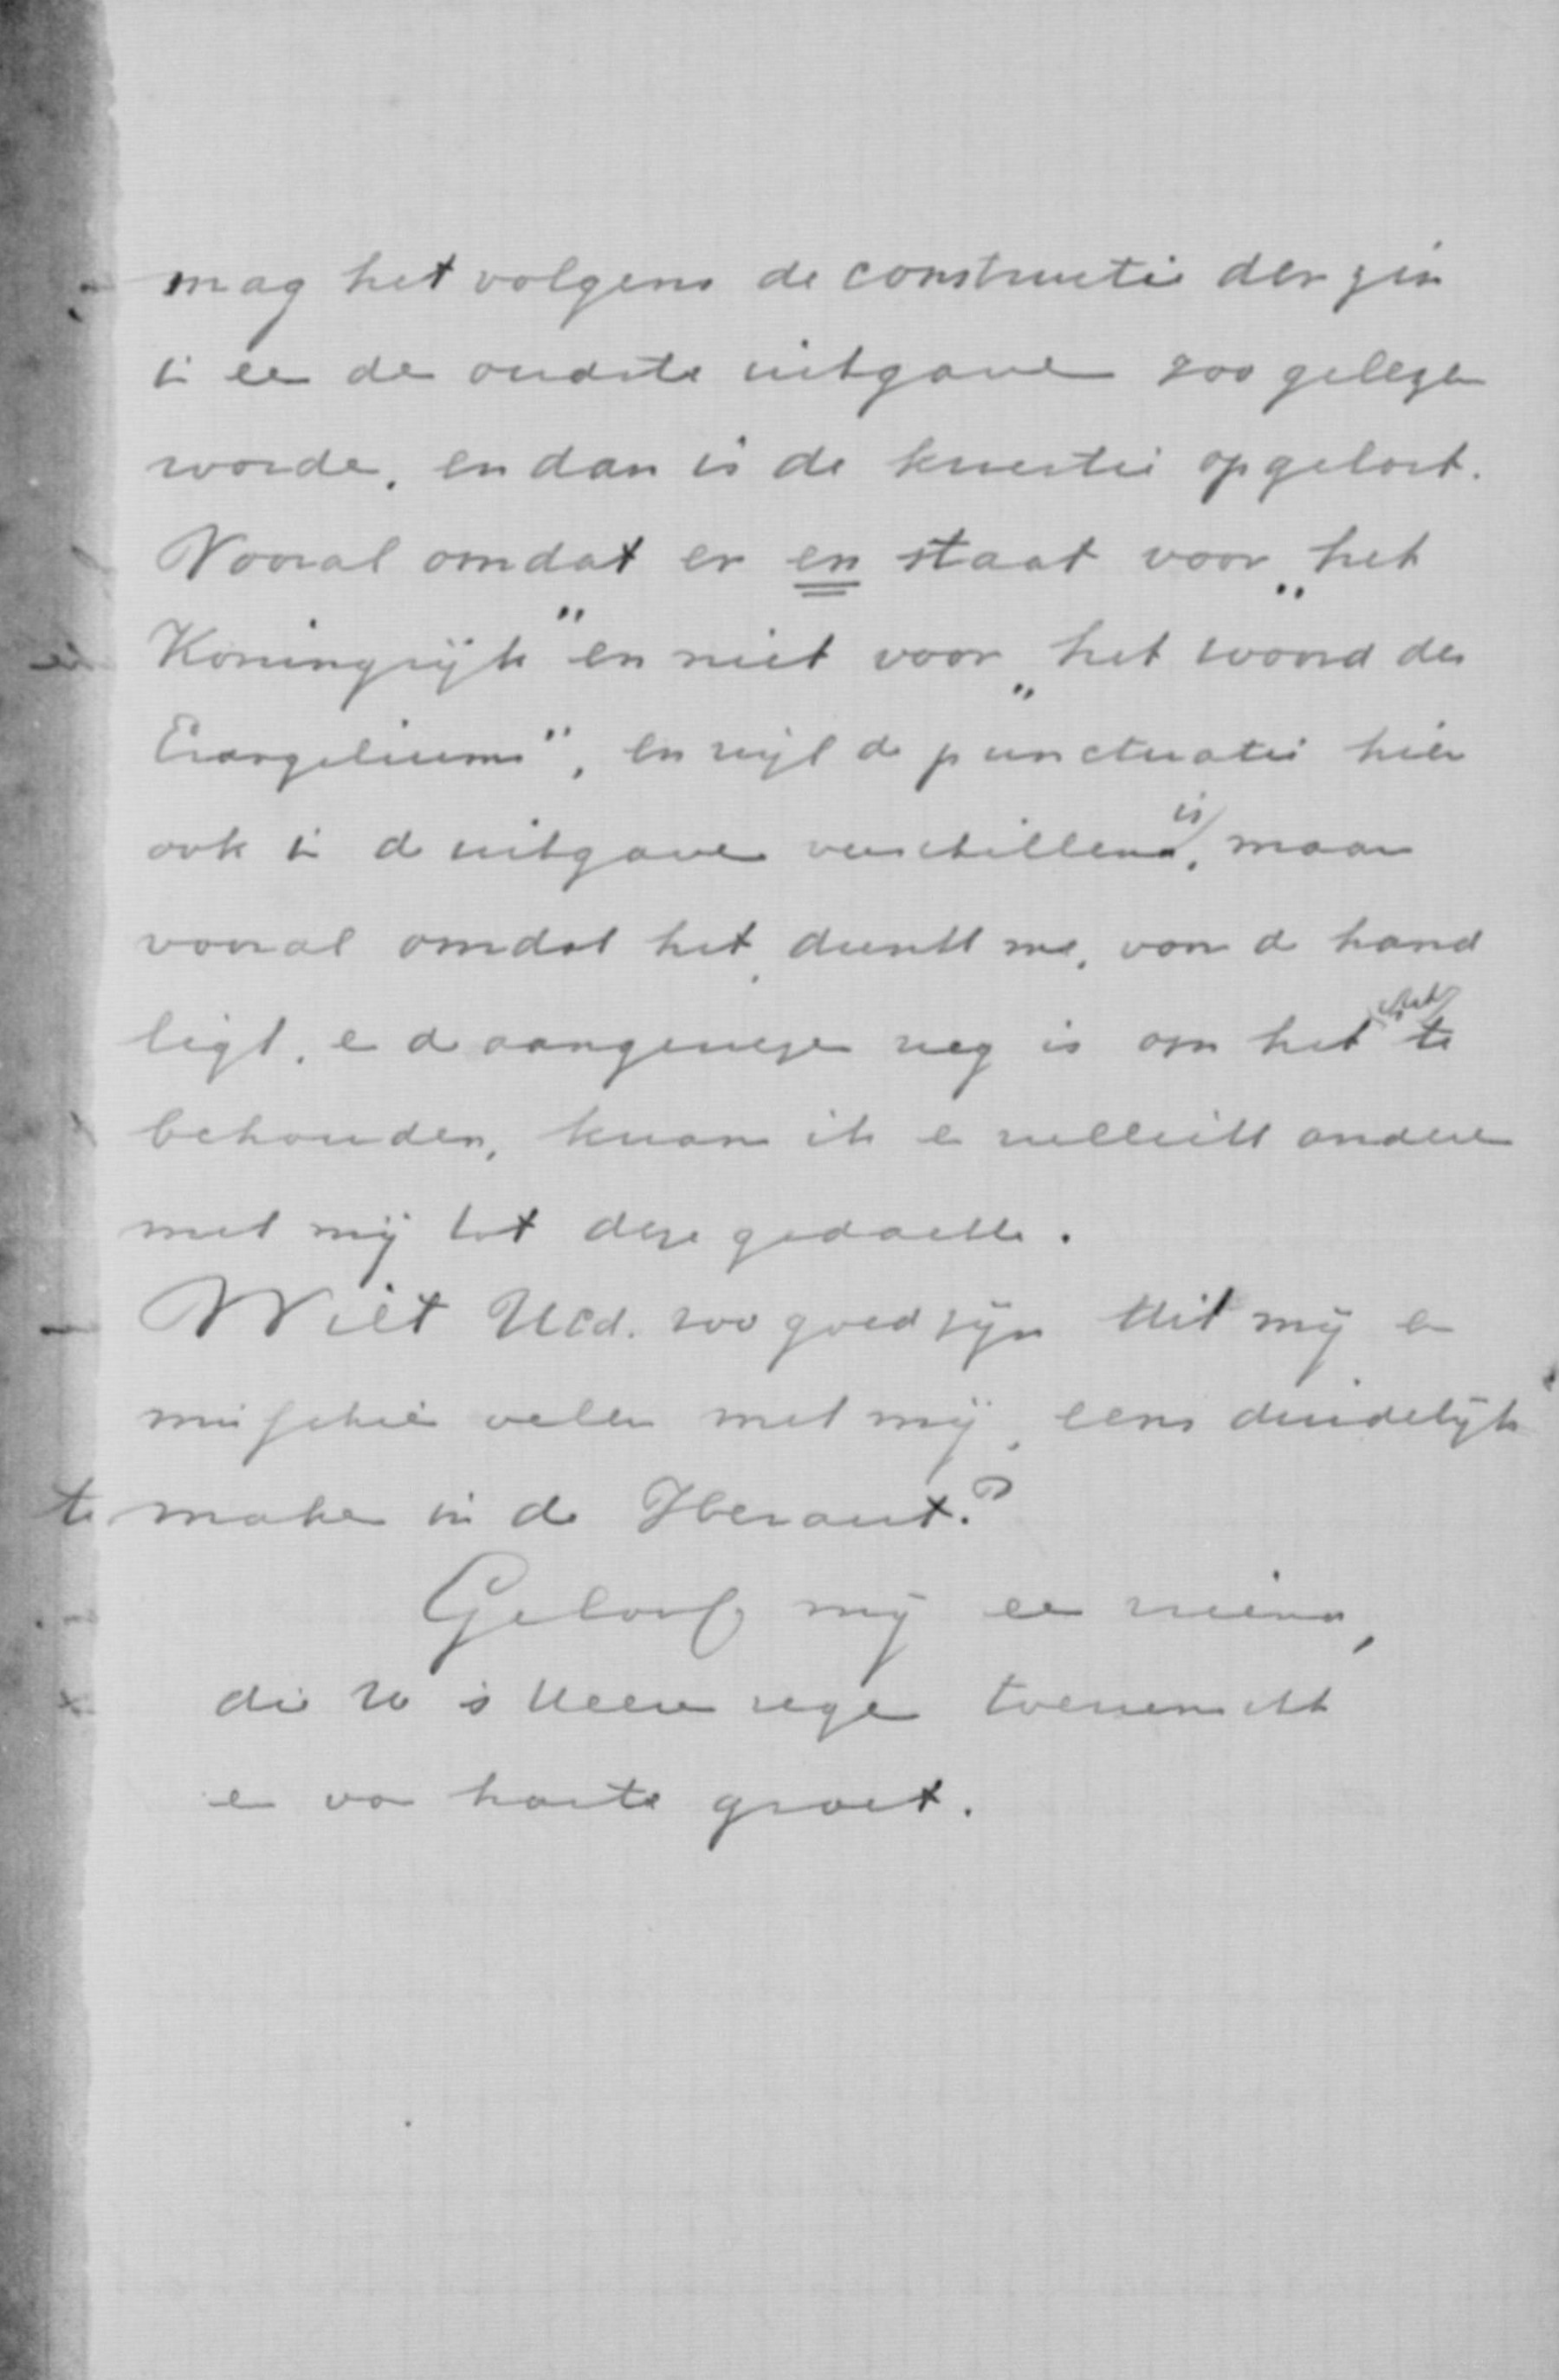 mag het volgens de constructie der zin
in een der oudste uitgaven zoo gelezen
worden, en dan is de kwestie opgelost.
Vooral omdat er en staat voor „het
Koningrijk" en niet voor „het woord des
Evangeliums", en wijl de punctuatie hier
ook in de uitgaven verschillend is, maar
vooral omdat het, dunkt me, voor de hand
ligt, en de aangewezen weg is om het te
behouden, kwam ik en wellicht anderen
met mij tot deze gedachte.
Wilt UEd. zoo goed zijn dit mij en
misschien velen met mij, eens duidelijk
te maken in de Heraut?
Geloof mij een vriend,
die U 's Heeren zegen toewenscht
en van harte groet.